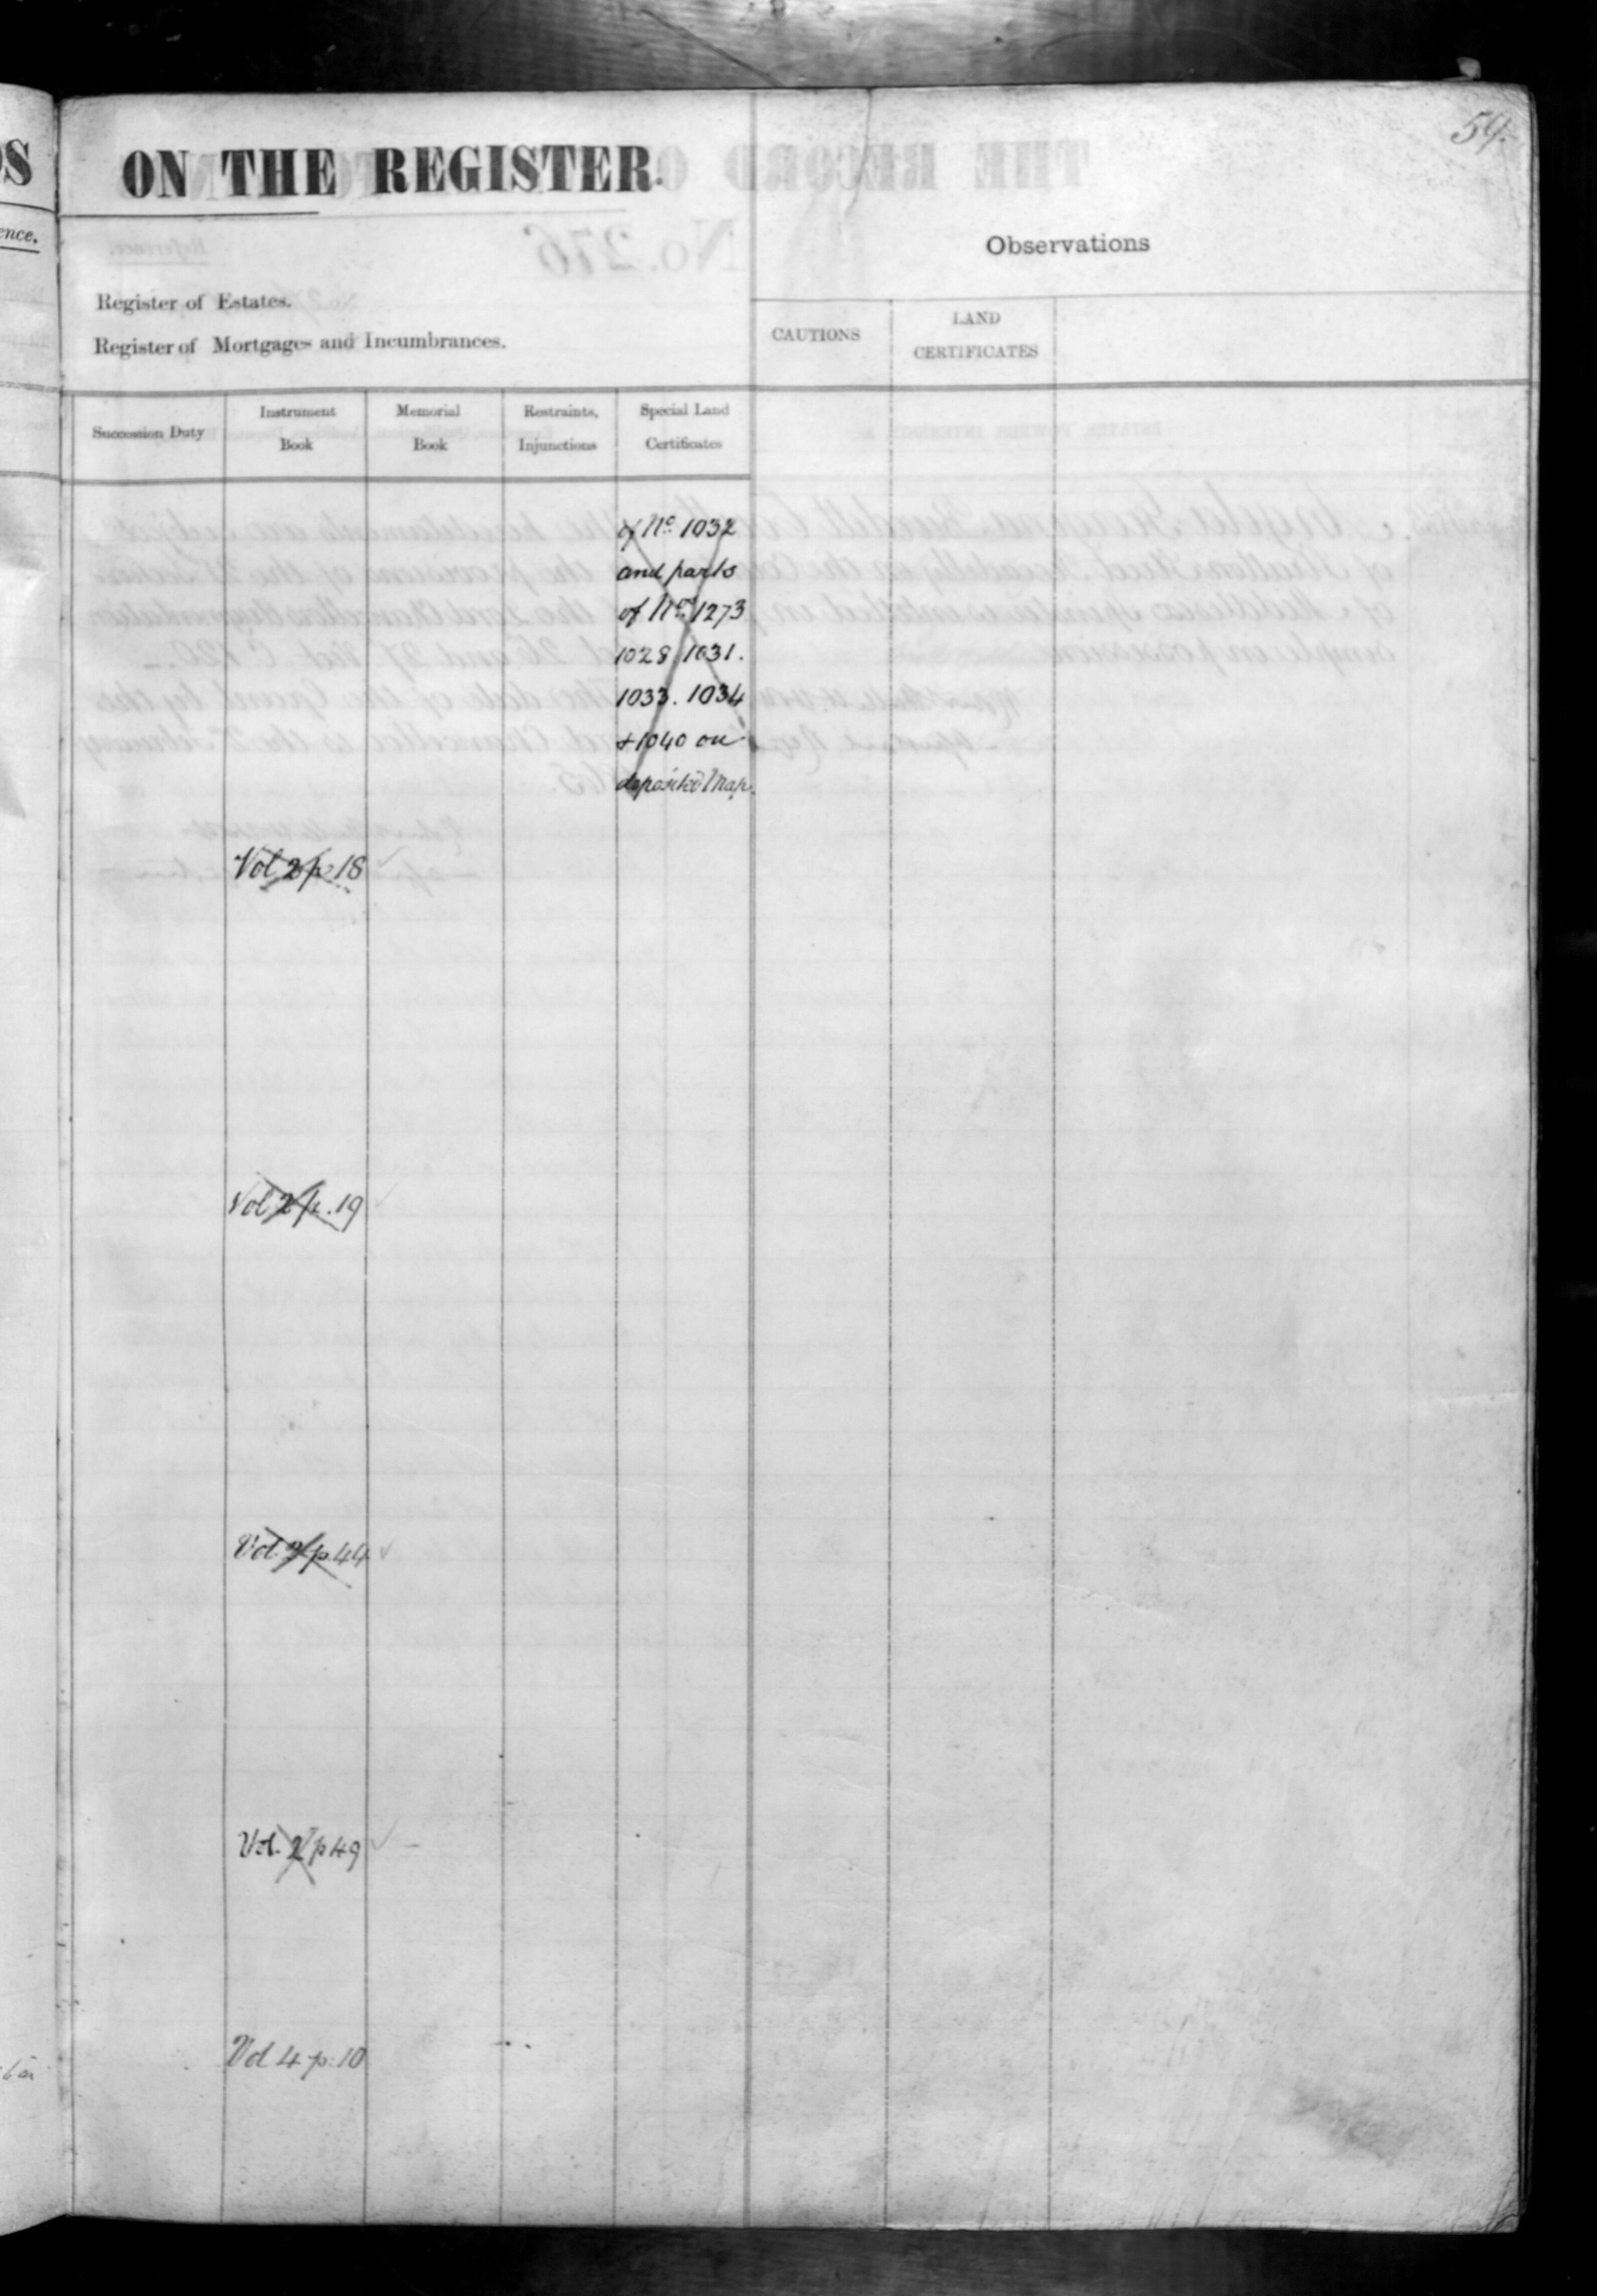 59.
ON THE REGISTER.
ence.
Observations
Register of Estates.
Register of Mortgages and Incumbrances.
CAUTIONS
LAND
CERTIFICATES
Succession Duty
Instrument
Book
Memorial
Book
Restraints,
Injunctions
Special Land
Certificates
of No. 1032
and parts
of Nos. 1273
1028. 1031.
1033. 1034
+ 1040 on
deposited Map.
Vol 2 p. 18
Vol 2 p. 19
Vol. 2 p 44
Vol. 2 p 49
Vol 4 p. 10